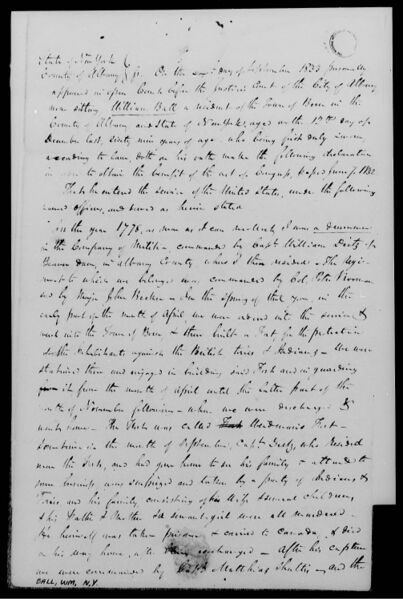 State of New York
County of Albany } ss. On the day of September 1833 personally
appeared in open Court before the Justices Court of the City of Albany
now sitting William Ball a resident of the Town of Bern in the
County of Albany and State of New York, aged on the 12th day of
December last, sixty nine years of age, who being first duly sworn
according to law, doth on his oath make the following declaration
in order to obtain the benefit of the act of Congress, passed June 7, 1832
That he entered the service of the United States, under the following
named officers, and served as herein stated
In the year 1778, as near as I can recollect, I was a
in the Company of Militia commanded by Capt William Deitz of
Beaver dam, in Albany County, where I then resided. The Regi-
ment to which we belonged was commanded by Col. Peter Vrooman
and by Major John Becker - In the Spring of that year, in the
early part of the month of April we were ordered into the service &
went into the Town of Bern & there built a Fort for the protection
of the inhabitants against the British tories & Indians - We were
stationed there and engaged in building said Fort and in guarding
it from the month of April until the latter part of the
month of November following - when we were discharged &
went home - The Fort was called Fort -
Sometime in the month of September, Capt Deitz, who resided
near the Fort, and had gone home to see his family & attend to
some business, was surprized and taken by a party of Indians &
Tories and his family consisting of his Wife several children,
& his Father & Mother & a servant girl were all murdered -
He himself was taken prisoner & carried to Canada, & died
on his way home, after being exchanged - After his capture
we were commanded by Capt Matthias Shultis - and the
BALL, WM. N.Y.